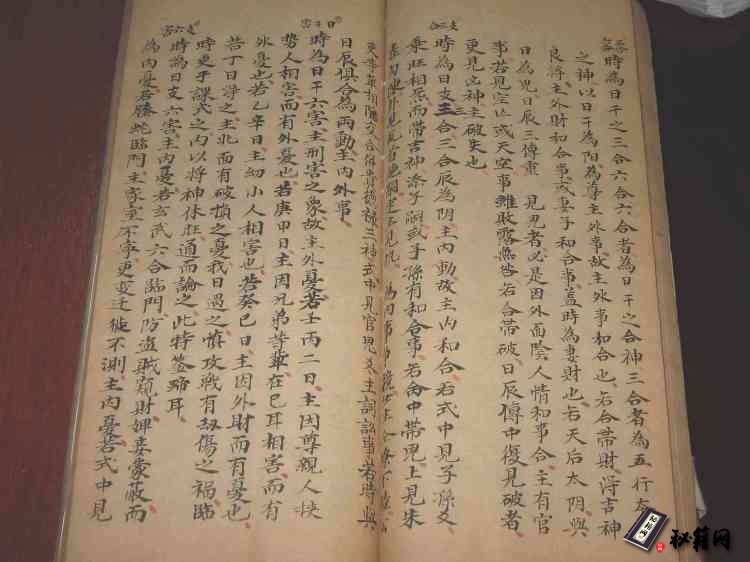 時為日干之三合六合六合者為日干之合神三合者為五行
之神以日干為陽為尊主外事故主外事和合也若合帶財得吉神
良將主外財和合事或妻子和合事蓋時為妻財也若天后太陰與
日為鬼日辰三傳重見鬼者必是因外面陰人情和事合主有官
事若見空亡或天空事雖敗露無咎若合帶破日辰傳中復見破者
更見凶神主破失也
支三合
時為日支三合三合辰為陰主內動故主內和合若式中見子孫爻
乘旺相炁而帶吉神添子嗣或子孫有和合事若合中帶鬼上見朱
三神式中見官鬼爻主詞訟事若時與
日辰俱合為兩動主內外事
日六害
時為日干六害主刑害之象故主外憂若壬丙二日主因尊親人挾
勢人相害而有外憂也若庚申日主因兄弟等輩在巳耳相害而有
外憂也若乙辛日主幼小人相害也若癸巳日主因外財而有憂也
若丁日得之主北面有破損之憂我日過之慎攻戰有劫傷之禍臨
時更于課式之內以將神休旺通而論之此特簽蹄耳
支六害
時為日支六害主內憂若玄武六合臨門防盜賊窺財婢妾蒙蔽而
為內憂若螣蛇臨門主家宅不寧更變遷徙不測主內憂若式中見
秘籍网